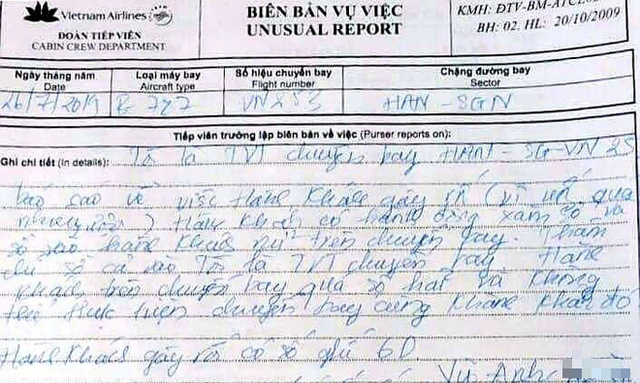 Vietnam Airlines
ĐOÀN TIẾP VIÊN
CABIN CREW DEPARTMENT
BIÊN BẢN VỤ VIỆC
UNUSUAL REPORT
KMH: ĐTV-BM-ATCL
BH: 02. HL: 20/10/2009
Ngày tháng năm
Date
Loại máy bay
Aircraft type
Số hiệu chuyến bay
Flight number
Chặng đường bay
Sector
26/7/2019 B 787 VN253 HAN - SGN
Tiếp viên trưởng lập biên bản về việc (Purser reports on):
Ghi chi tiết (In details): Tôi là TVT chuyến bay HAN - SG - VN 25
báo cáo về việc Hành khách gây rối (vì uống quá
nhiều rượu) Hành khách có hành động xàm sỡ và
sờ vào hành khách nữ trên chuyến bay. Thậm
chí sờ cả vào Tôi là TVT chuyến bay. Hành
khách trên chuyến bay quá sợ hãi và không
thể thực hiện chuyến bay cùng khách đó
Hành khách gây rối có số ghế 6D
Vũ Anh